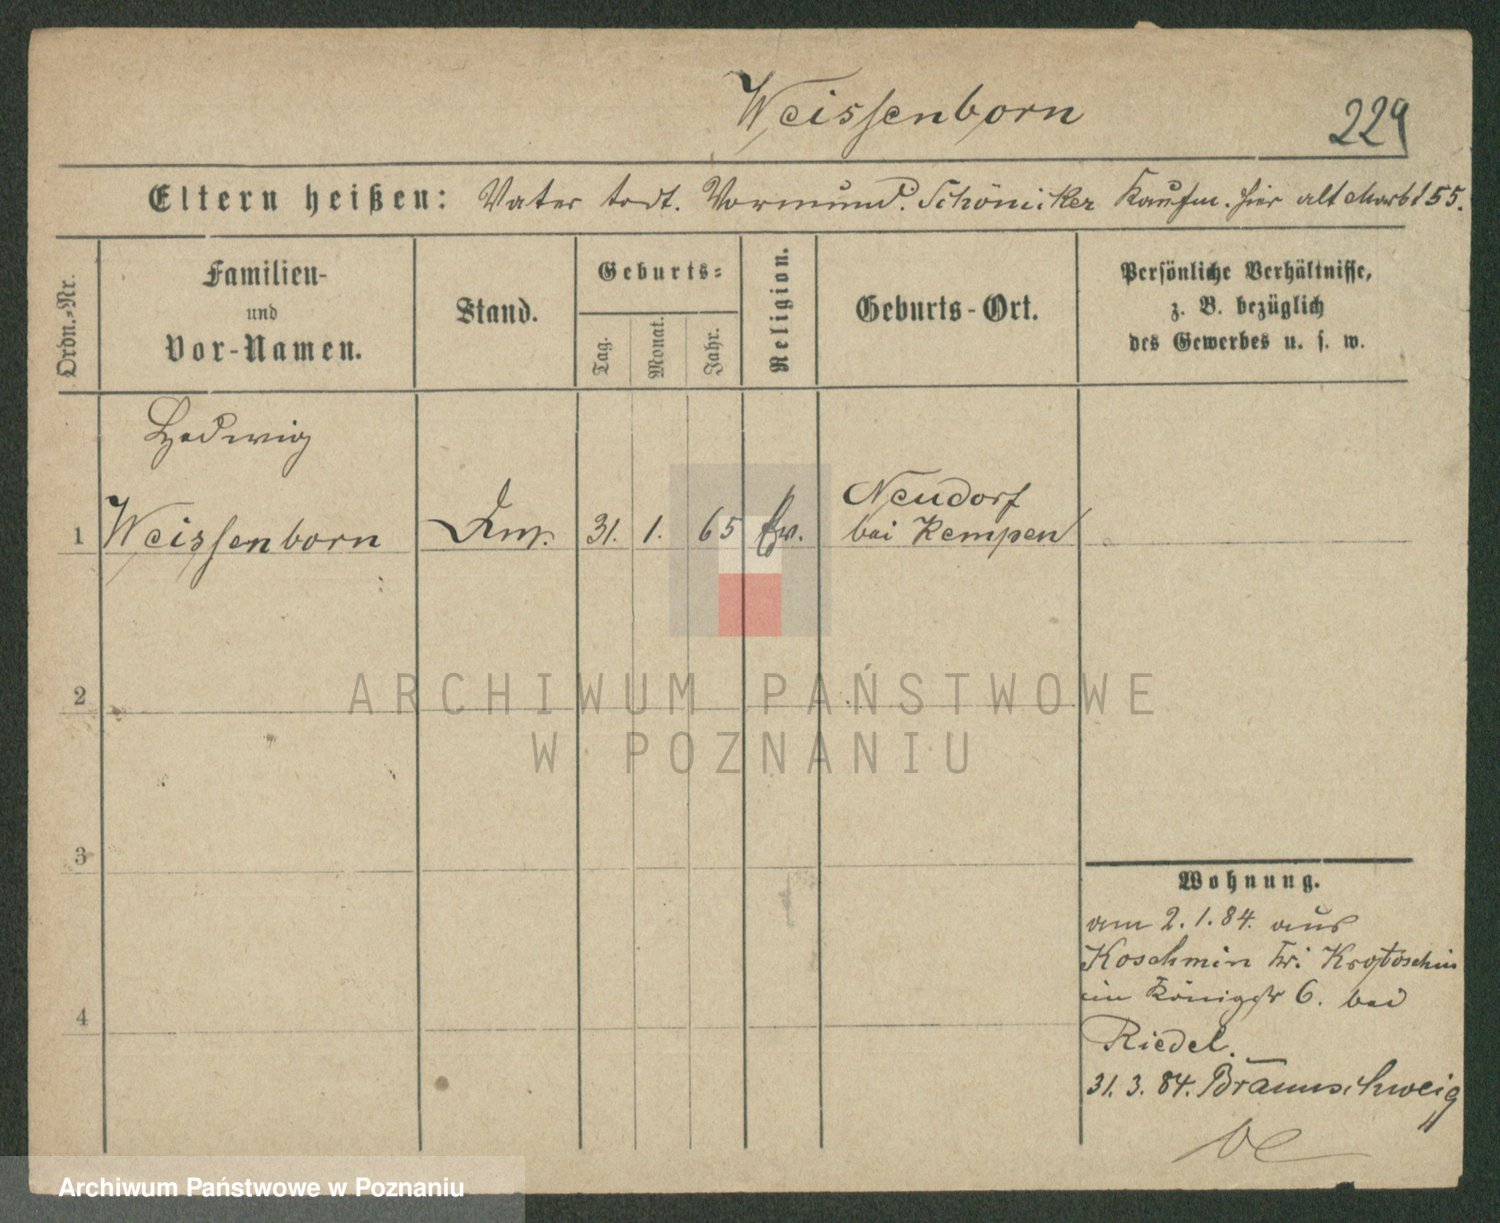 Weissenborn
229
Eltern heißen: Vater todt. Vormund. Schönicker Kaufm. hier alt Markt 55.
Ordn.=Nr.
Familien-
und
Vor-Namen.
Stand.
Geburts=
Tag.
Monat.
Jahr.
Religion.
Geburts-Ort.
Persönliche Verhältnisse,
z. B. bezüglich
des Gewerbes u. s. w.
Hedwig
1 Weissenborn 31. 1. 65 Ev. Neudorf
bei Kempen
2
ARCHIWUM PAŃSTWOWE
W POZNANIU
3
4
Wohnung.
am 2.1.84. aus
Koschmin Kr. Krotoschin
in Königstr 6. bei
Riedel.
31. 3. 84. Braunschweig
Archiwum Państwowe w Poznaniu